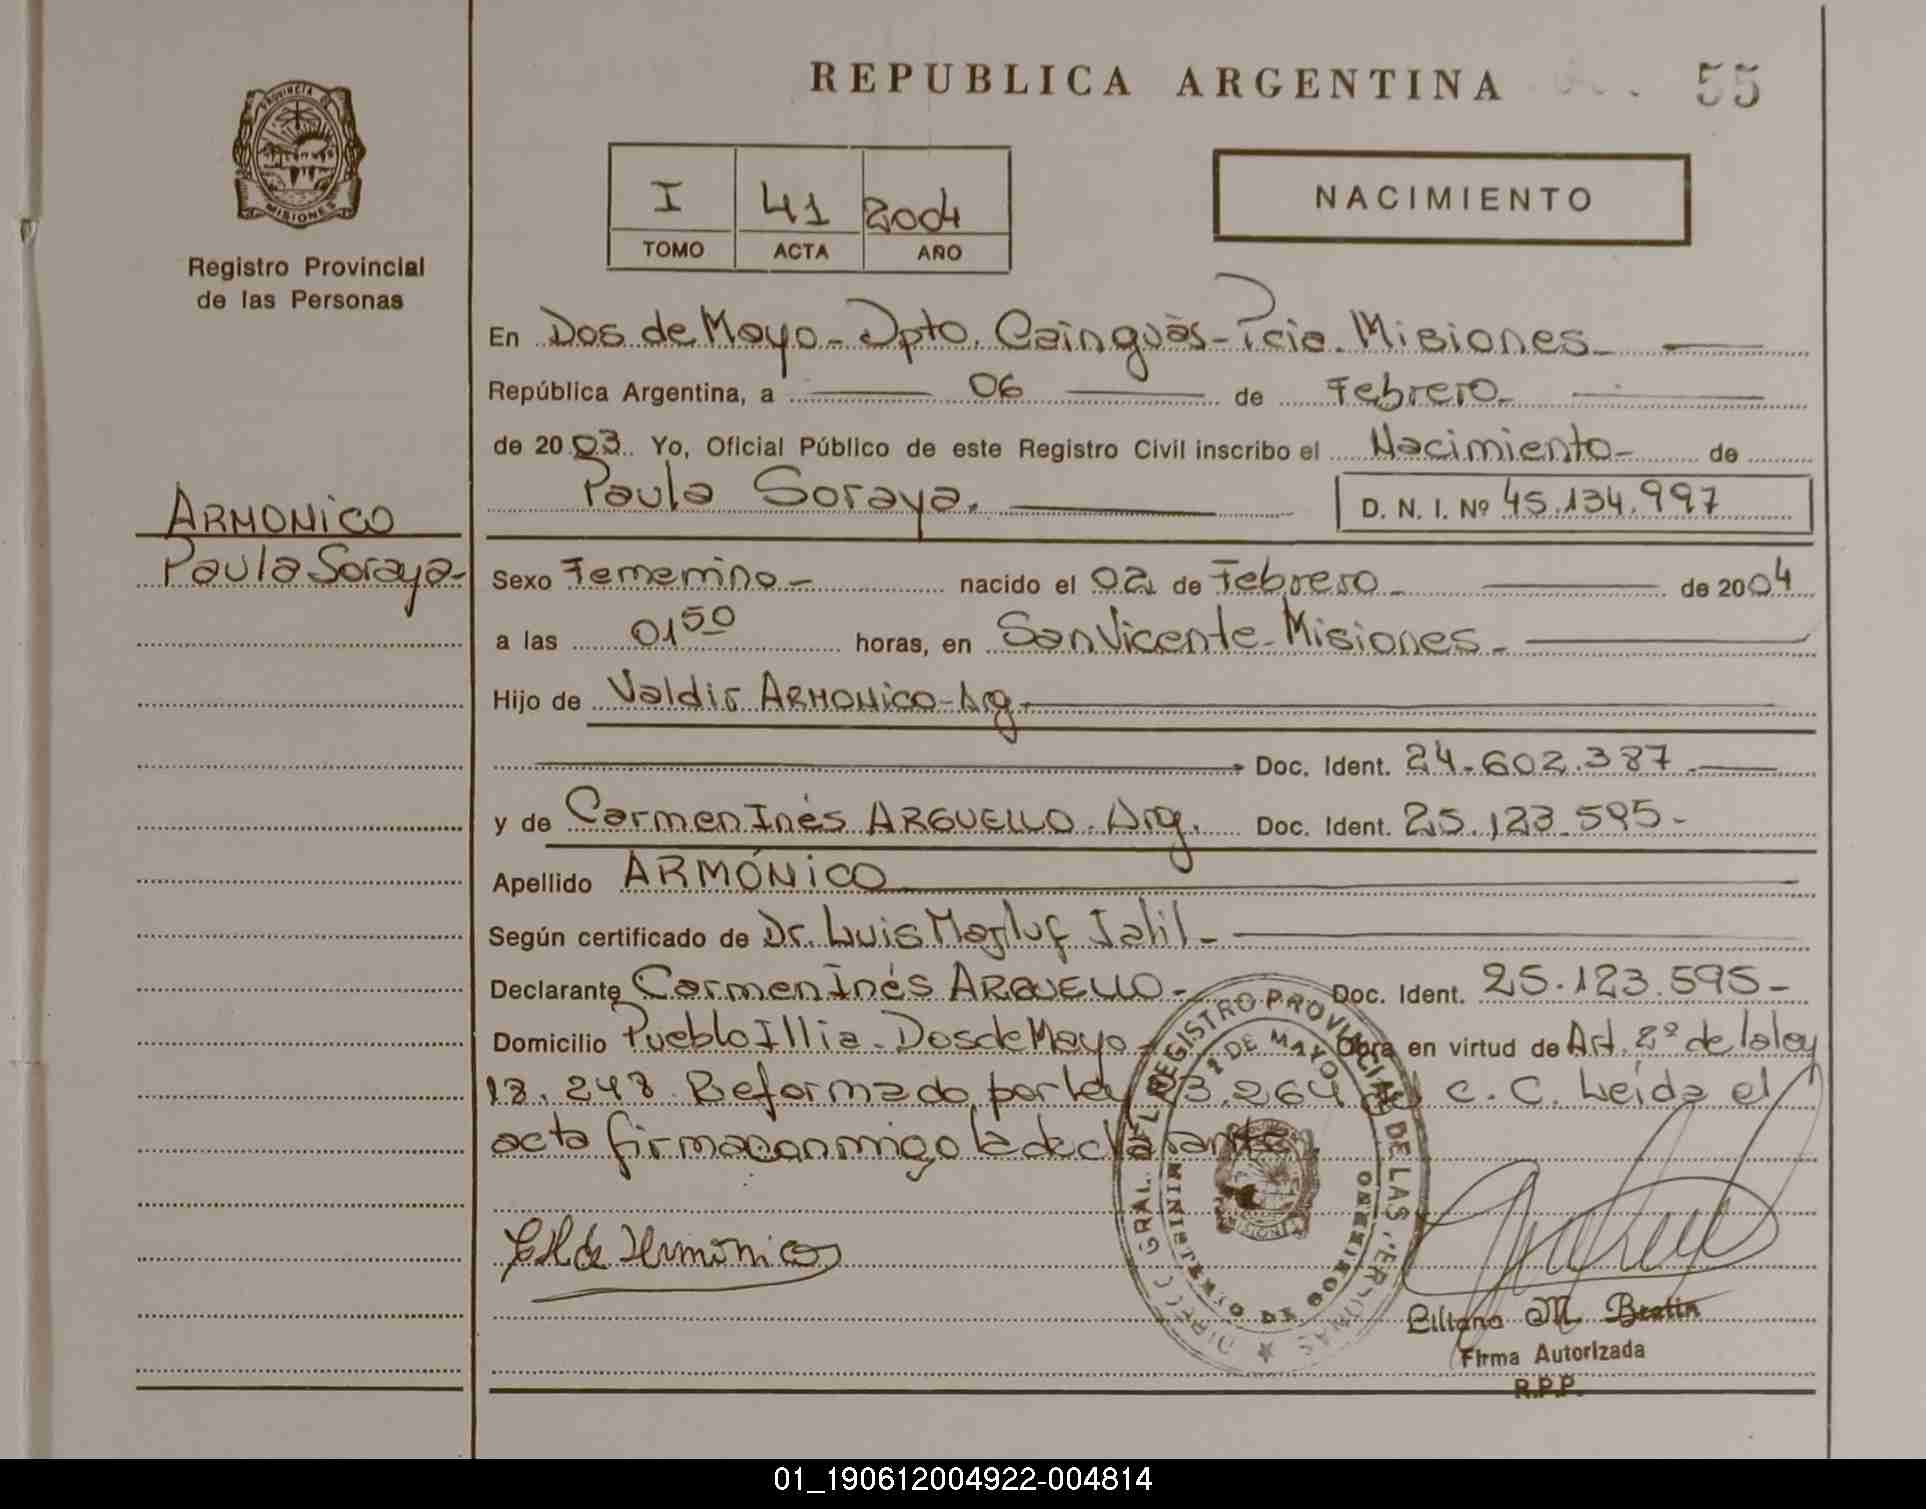 REPUBLICA ARGENTINA 55
PROVINCIA DE
MISIONES
Registro Provincial
de las Personas
I 41 2004
TOMO ACTA AÑO
NACIMIENTO
En Dos de Mayo - Dpto. Cainguàs - Pcia. Misiones -
República Argentina, a 06 de Febrero -
de 2003. Yo, Oficial Público de este Registro Civil inscribo el Nacimiento - de
Paula Soraya. D. N. I. Nº 45.134.997
ARMONICO
Paula Soraya -
Sexo Femenino - nacido el 02 de Febrero - de 2004
a las 01 50 horas, en San Vicente - Misiones -
Hijo de Valdir ARMONICO - Arg.
Doc. Ident. 24.602.387 -
y de Carmen Inés ARGUELLO - Arg. Doc. Ident. 25.123.595 -
Apellido ARMÓNICO
Según certificado de Dr. Luis Magluf Jalil -
Declarante Carmen Inés ARGUELLO - Doc. Ident. 25.123.595 -
Domicilio Pueblo Illia - Dos de Mayo - Obra en virtud de Art. 2º de la ley
18.248 Reformado por ley 23.264 del C. C. Leída el
acta firma conmigo la declarante
DIRECC. GRAL. DEL REGISTRO PROVINCIAL DE LAS PERSONAS
2 DE MAYO
MINISTERIO DE GOBIERNO
MISIONES
de Armonico
Liliana M. Breslin
Firma Autorizada
R.P.P.
01_190612004922-004814